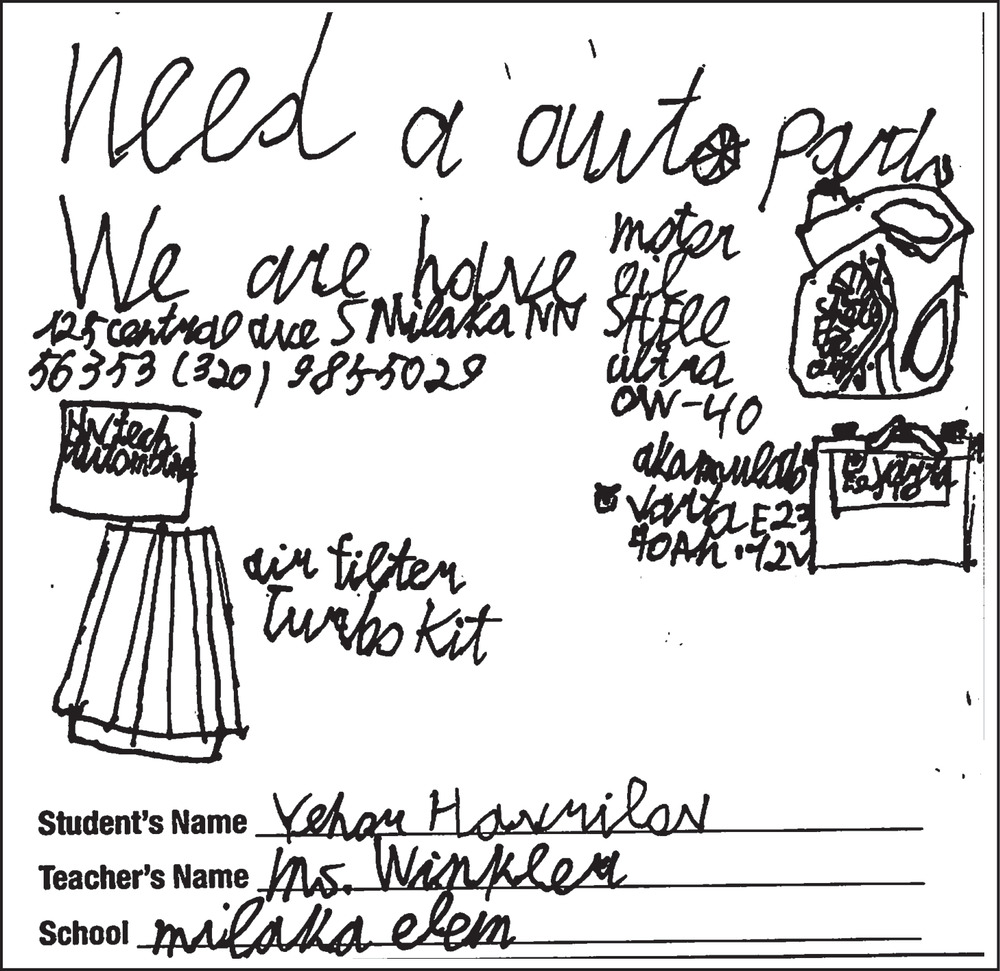 need a auto parts
We are have
125 central ave S Milaka NN
56353 (320) 983-5029
motor
oil
SHELL
ultra
0W-40
shell
akamulator
Varta E23
70Ah 12V
air filter
Turbo Kit
Student's Name Yehor Havrilov
Teacher's Name Ms. Winkler
School milaka elem